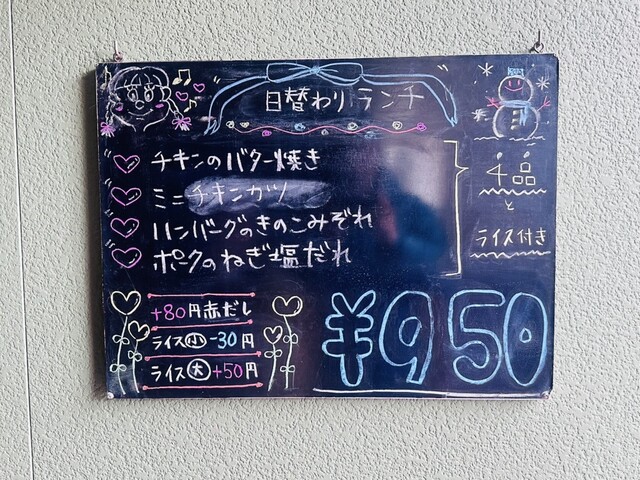 日替わりランチ
チキンのバター焼き
ミニチキンカツ
ハンバーグのきのこみぞれ
ポークのねぎ塩だれ
4品
と
ライス付き
+80円赤だし
ライス小-30円
ライス大+50円
¥950